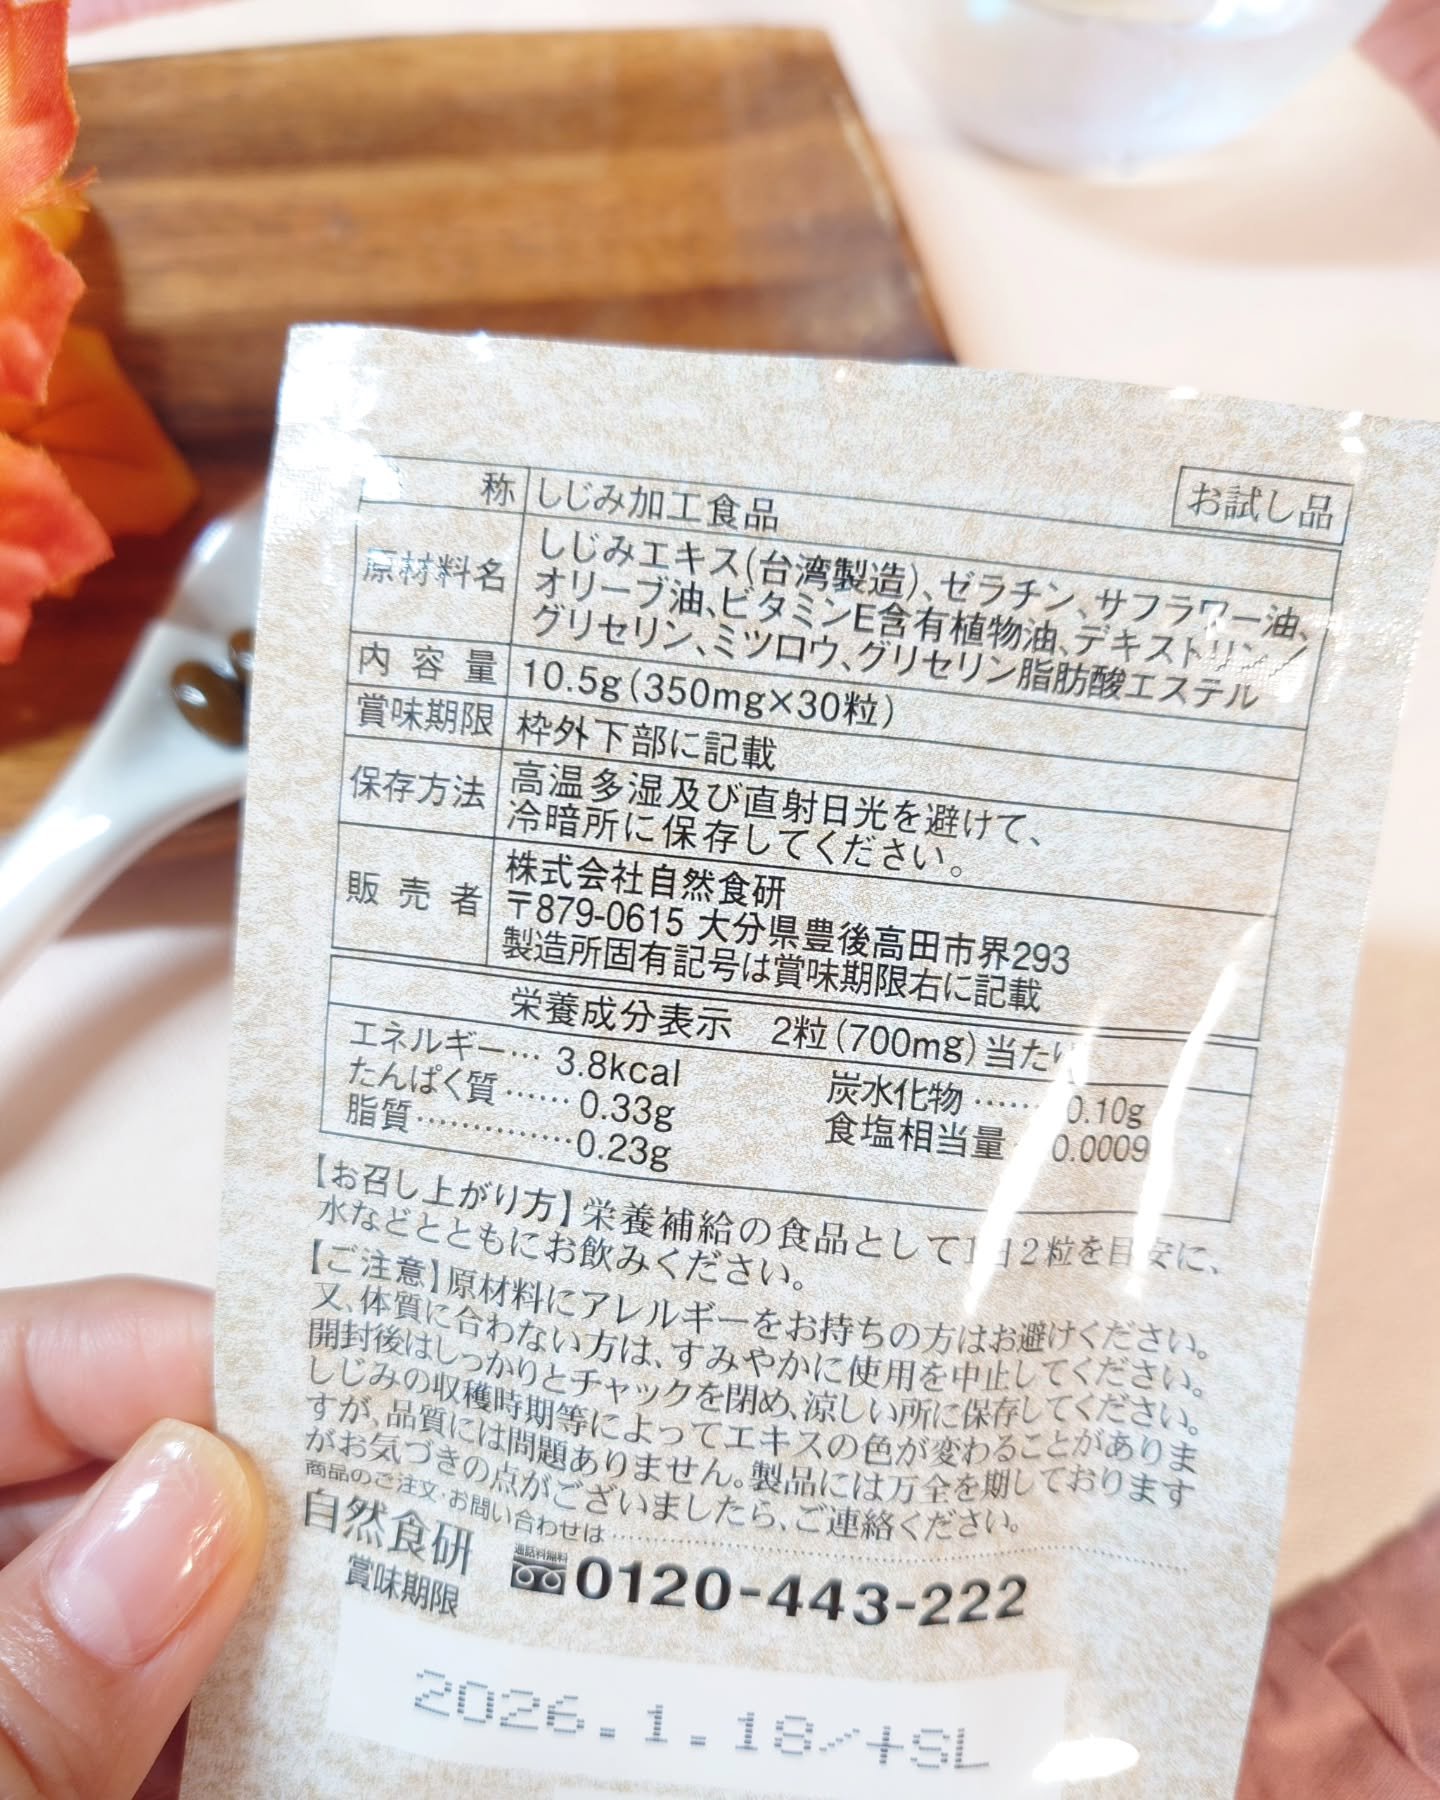 称 しじみ加工食品
お試し品
原材料名 しじみエキス(台湾製造)、ゼラチン、サフラワー油、
オリーブ油、ビタミンE含有植物油、デキストリン／
グリセリン、ミツロウ、グリセリン脂肪酸エステル
内容量 10.5g(350mg×30粒)
賞味期限 枠外下部に記載
保存方法 高温多湿及び直射日光を避けて、
冷暗所に保存してください。
販売者 株式会社自然食研
〒879-0615 大分県豊後高田市界293
製造所固有記号は賞味期限右に記載
栄養成分表示 2粒(700mg)当たり
エネルギー… 3.8kcal
たんぱく質…… 0.33g
脂質…………… 0.23g
炭水化物…… 0.10g
食塩相当量 0.0009
【お召し上がり方】栄養補給の食品として1日2粒を目安に、
水などとともにお飲みください。
【ご注意】原材料にアレルギーをお持ちの方はお避けください。
又、体質に合わない方は、すみやかに使用を中止してください。
開封後はしっかりとチャックを閉め、涼しい所に保存してください。
しじみの収穫時期等によってエキスの色が変わることがありま
すが、品質には問題ありません。製品には万全を期しております
がお気づきの点がございましたら、ご連絡ください。
商品のご注文・お問い合わせは
自然食研 通話料無料 0120-443-222
賞味期限
2026.1.18/+SL